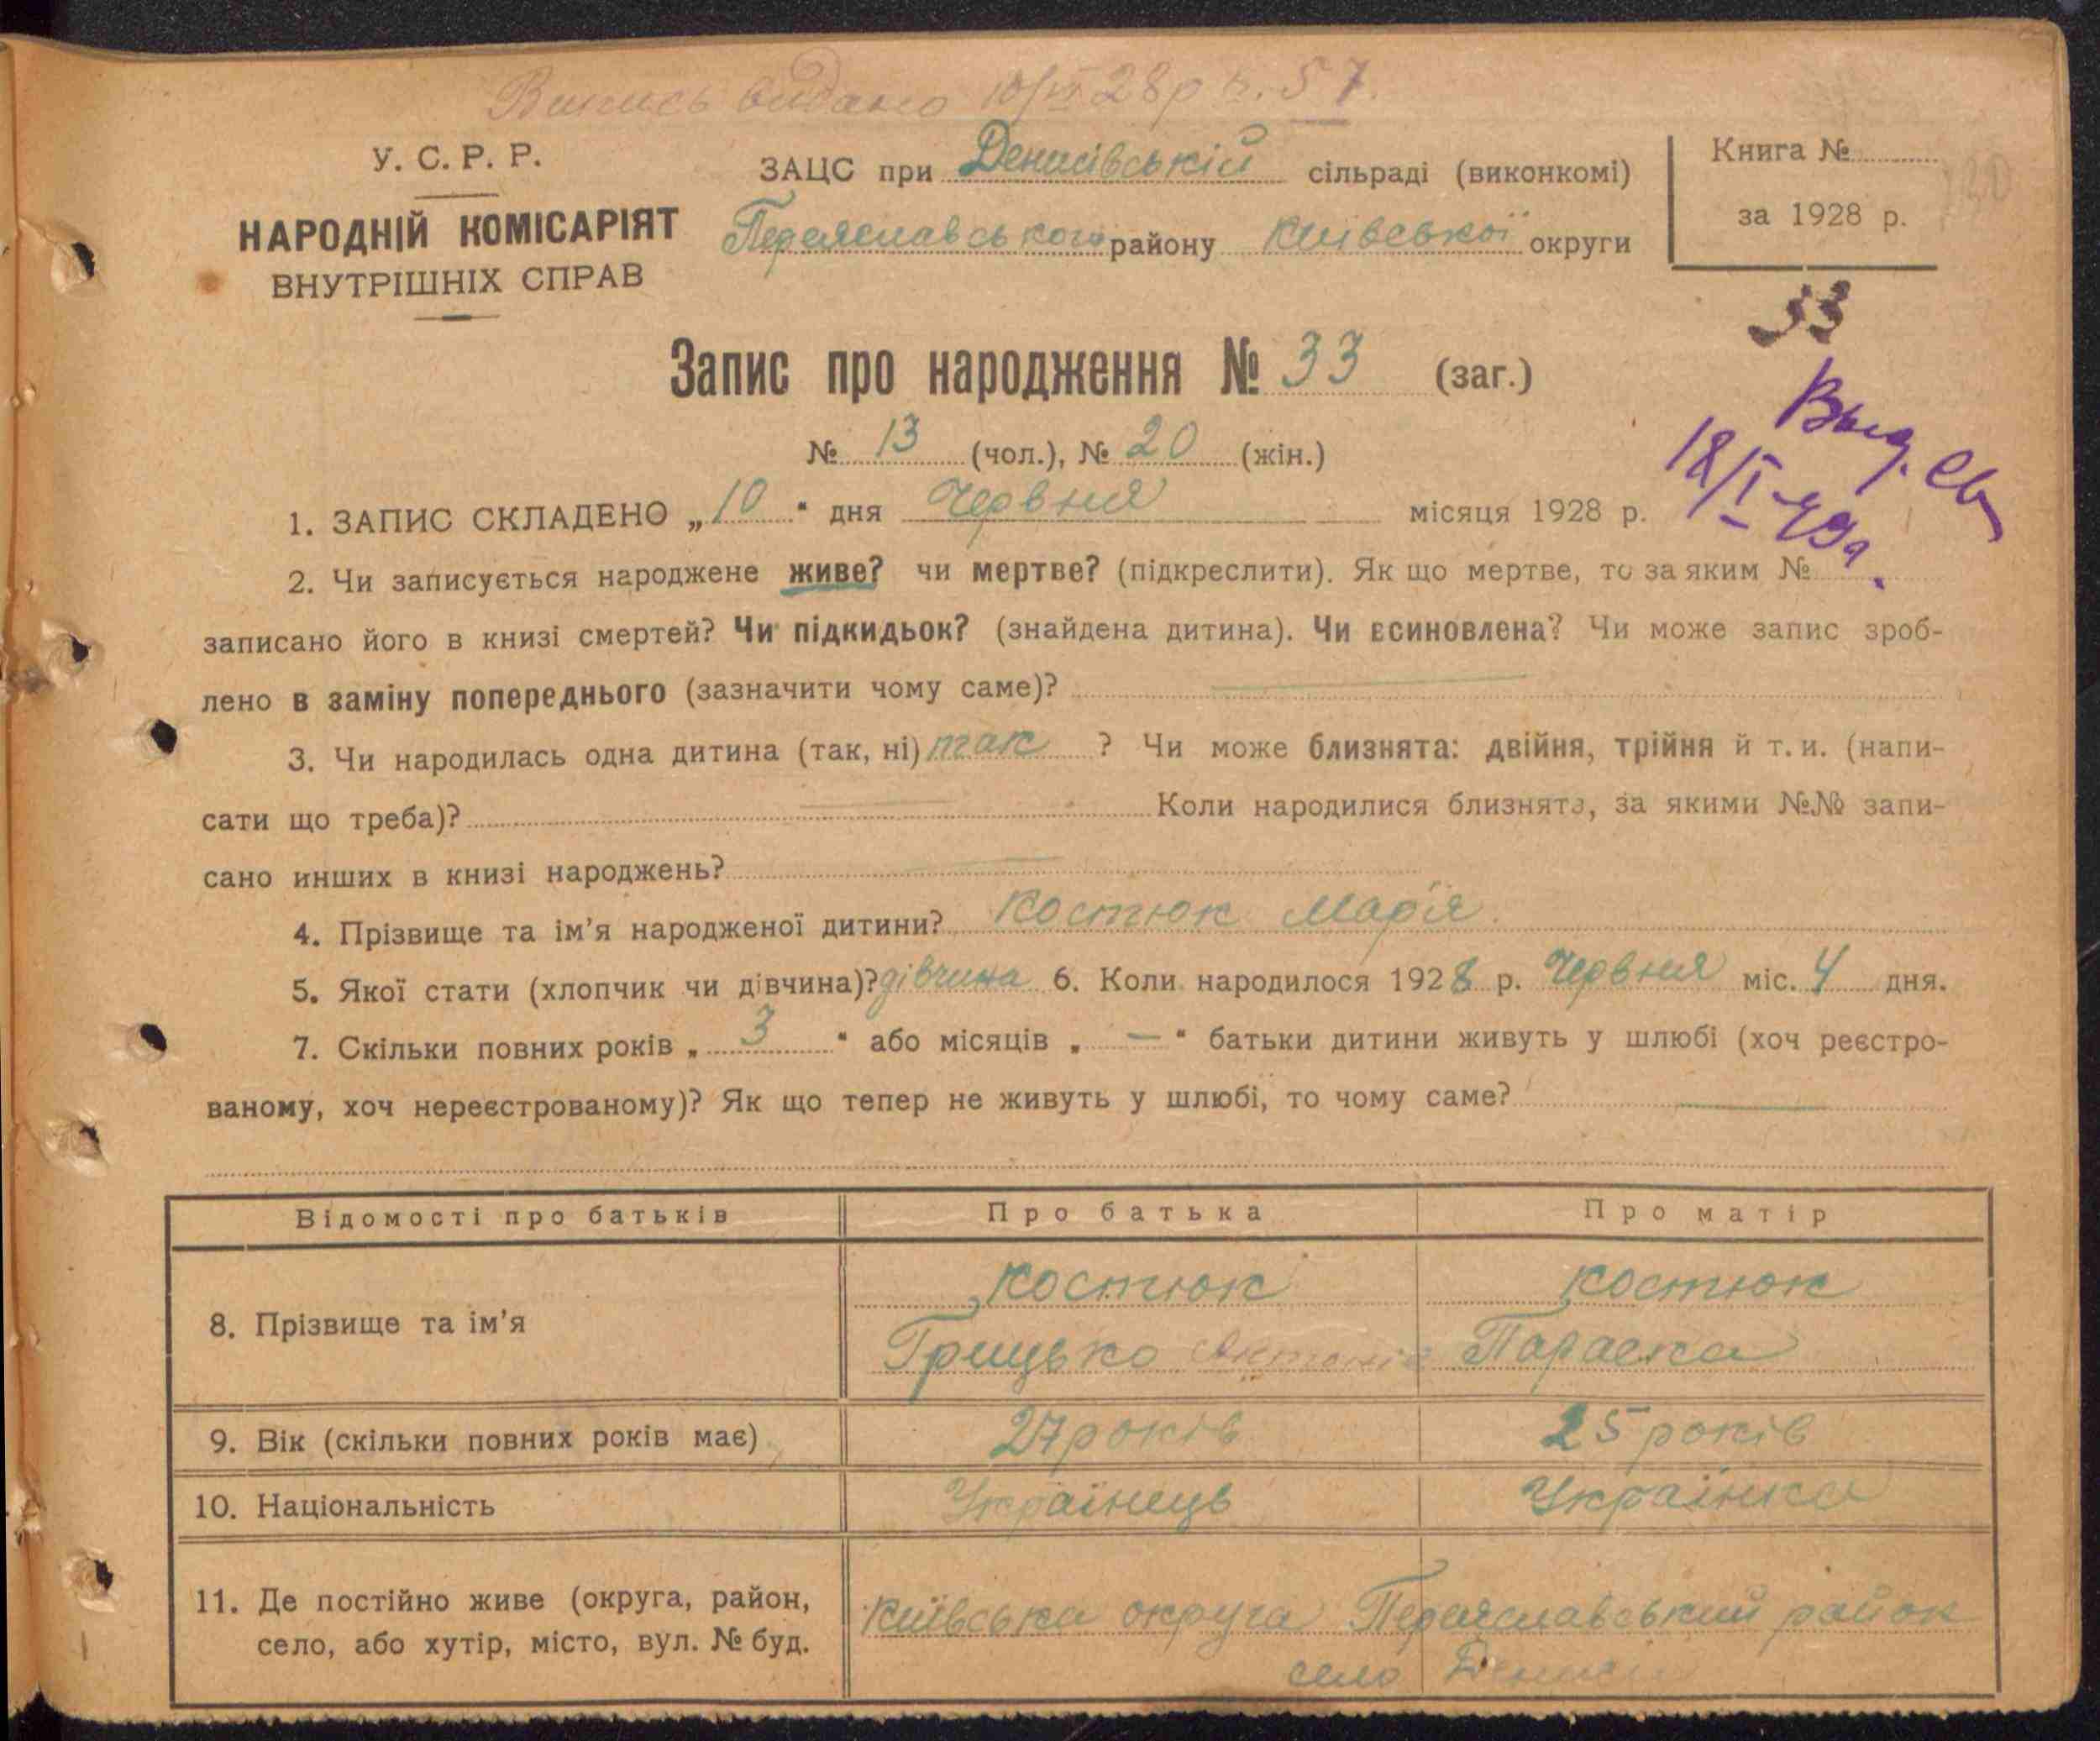 Випись видано 10/VI 28р н. 57.
У. С. Р. Р.
НАРОДНІЙ КОМІСАРІЯТ
ВНУТРІШНІХ СПРАВ
ЗАЦС при Денисівській сільраді (виконкомі)
Переяславського району Київської округи
Книга №
за 1928 р.
33
Запис про народження № 33 (заг.)
Выд. св
18/I-49г.
№ 13 (чол.), № 20 (жін.)
1. ЗАПИС СКЛАДЕНО „10" дня Червня місяця 1928 р.
2. Чи записується народжене живе? чи мертве? (підкреслити). Як що мертве, то за яким №
записано його в книзі смертей? Чи підкидьок? (знайдена дитина). Чи всиновлена? Чи може запис зроб-
лено в заміну попереднього (зазначити чому саме)?
3. Чи народилась одна дитина (так, ні) так ? Чи може близнята: двійня, трійня й т. и. (напи-
сати що треба)? Коли народилися близнята, за якими №№ запи-
сано инших в книзі народжень?
4. Прізвище та ім'я народженої дитини? Костюк Марія.
5. Якої стати (хлопчик чи дівчина)? дівчина 6. Коли народилося 1928 р. Червня міс. 4 дня.
7. Скільки повних років „ 3 " або місяців „ — " батьки дитини живуть у шлюбі (хоч реєстро-
ваному, хоч нереєстрованому)? Як що тепер не живуть у шлюбі, то чому саме?
Відомості про батьків Про батька Про матір
8. Прізвище та ім'я
Костюк Костюк
Грицько Антонів Параска
9. Вік (скільки повних років має) 27 років 25 років
10. Національність Українець Українка
11. Де постійно живе (округа, район,
село, або хутір, місто, вул. № буд.
Київська округа Переяславський район
село Дениси